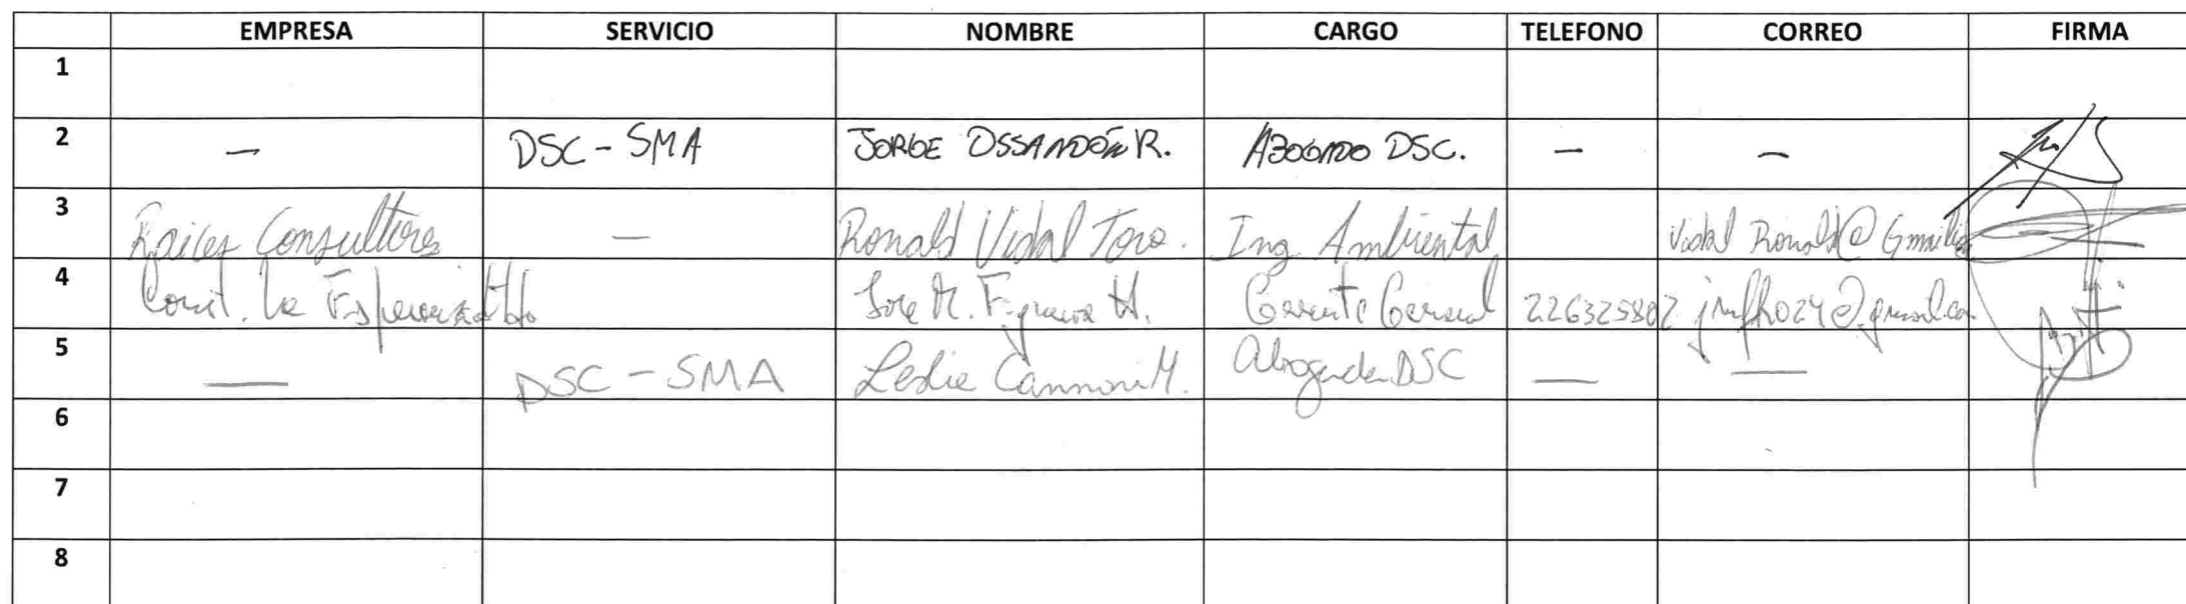 EMPRESA SERVICIO NOMBRE CARGO TELEFONO CORREO FIRMA
1
2 — DSC - SMA JORGE OSSANDÓN R. ABOGADO DSC. — —
3 Raices Consultores — Ronald Vidal Toro. Ing Ambiental
4 Const. La Esperanza Jose M. H. Gerente General 226325802
5 — DSC - SMA Leslie Cannoni M. Abogada DSC — —
6
7
8